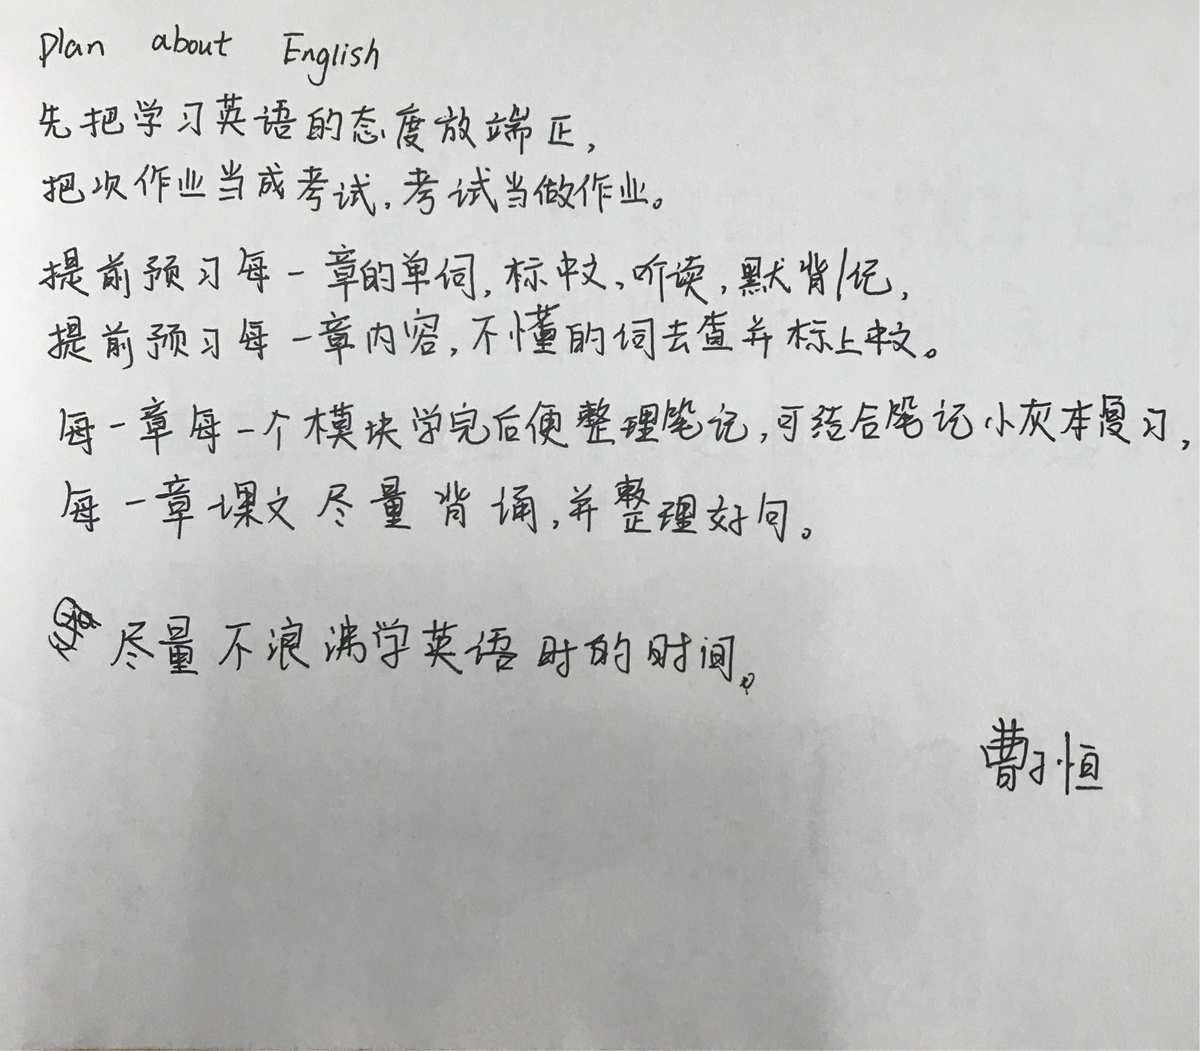 Plan about English
先把学习英语的态度放端正,
把次作业当成考试,考试当做作业。
提前预习每一章的单词,标中文、听读,默背/记,
提前预习每一章内容,不懂的词去查并标上中文。
每一章每一个模块学完后便整理笔记,可结合笔记小灰本复习,
每一章课文尽量背诵,并整理好句。
尽量不浪沸学英语时的时间。
曹子恒